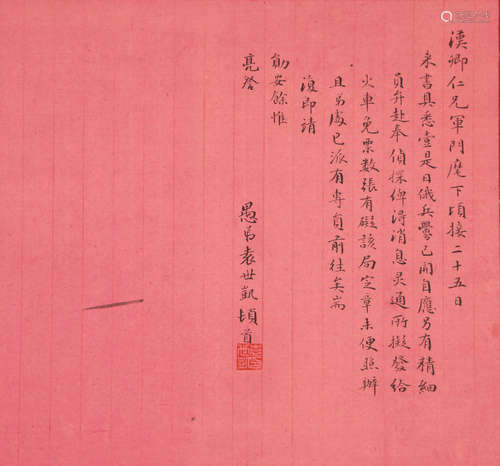 漢卿仁兄軍門麾下頃接二十五日
來書具悉壹是日俄兵釁已開自應另有精細
員弁赴奉偵探俾得消息灵通所擬發給
火車免票數張有礙該局定章未便照辦
且弟處已派有專員前往矣耑
復即請
勛安餘惟
亮詧
愚弟袁世凱頓首